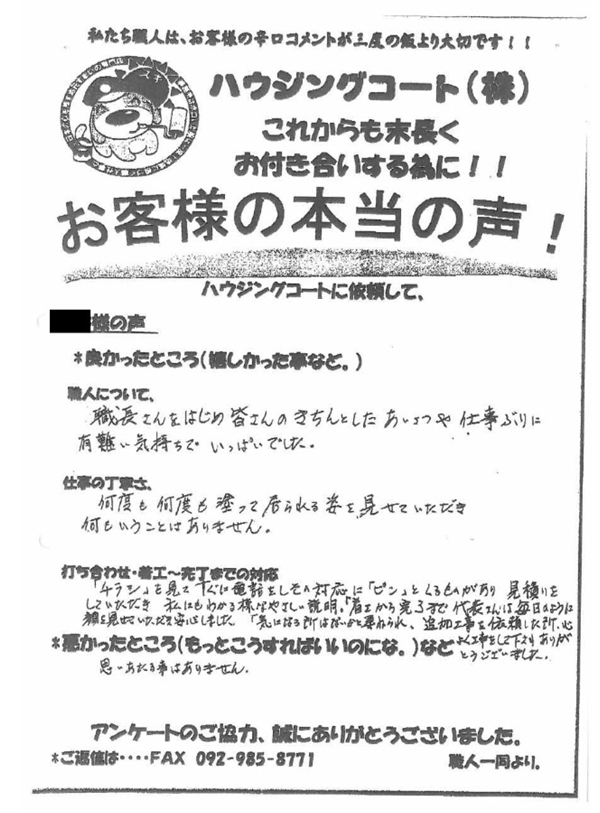 私たち職人は、お客様の辛口コメントが三度の飯より大切です！！
ハウジングコート（株）
これからも末長く
お付き合いする為に！！
お客様の本当の声！
ハウジングコートに依頼して、
様の声
*良かったところ（嬉しかった事など。）
職人について、
職長さんをはじめ皆さんのきちんとしたあいさつや仕事ぶりに
有難い気持ちでいっぱいでした。
仕事の丁寧さ、
何度も何度も塗って居られる姿を見せていただき
何もいうことはありません。
打ち合わせ・着工～完了までの対応
「チラシ」を見てすぐに電話をしその対応に「ピン」とくるものがあり 見積りを
していただき 私にもわかる様なやさしい説明。「着工から完了まで 代表さんは毎日のように
顔を見せていただき安心しました。「気になる所はないかと尋ねられ、追加工事を依頼した所、心
よく工事をして下さりありが
とうございました。
*悪かったところ（もっとこうすればいいのにな。）など
思いあたる事はありません。
アンケートのご協力、誠にありがとうございました。
*ご返信は・・・・FAX 092-985-8771
職人一同より。